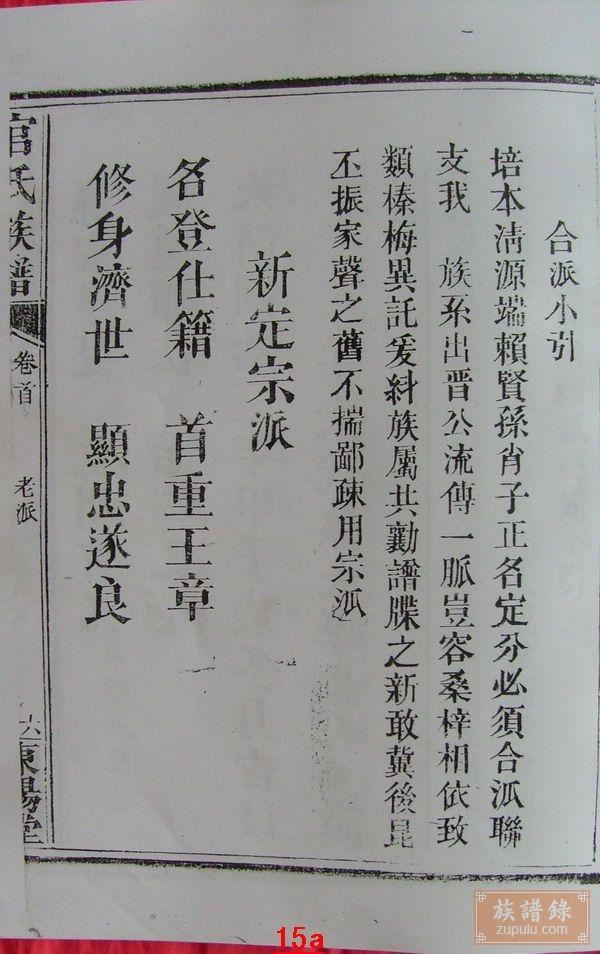 合派小引
培本清源端賴賢孫肖子正名定分必須合派聯
支我 族系出晋公流傳一脈豈容桑梓相依致
類榛梅異託爰糾族屬共勷譜牒之新敢冀後昆
丕振家聲之舊不揣鄙疎用宗派
新定宗派
名登仕籍 首重王章
修身濟世 顯忠遂良
官氏族譜 卷首 老派 六 東陽堂
族譜錄
zupulu.com
15a